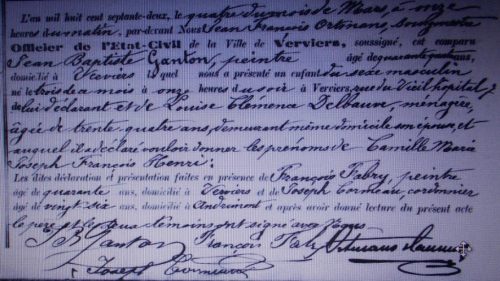 L'an mil huit cent septante-deux, le quatre du mois de Mars, à onze
heures du matin, par-devant Nous Jean François Ortmans, bourgmestre
Officier de l'Etat-Civil de la Ville de Verviers, soussigné, est comparu
Jean Baptiste Ganton, peintre âgé de quarante quatre ans,
domicilié à Verviers lequel nous a présenté un enfant du sexe masculin
né le trois de ce mois à onze heures du soir à Verviers, rue du Vieil hôpital,
de lui déclarant et de Louise Clemena Delbaun, ménagère,
âgée de trente-quatre ans, demeurant même domicile son épouse, et
auquel il a déclaré vouloir donner les prénoms de Camille Marie
Joseph François Henri.
Les dites déclaration et présentation faites en présence de François Fabry, peintre
âgé de quarante ans, domicilié à Verviers et de Joseph Cormeau, cordonnier
âgé de vingt six ans, domicilié à Andrimont et après avoir donné lecture du présent acte
le père et les deux témoins ont signé avec Nous
JB Ganton François Fabry Ortmans
Joseph Cormeau